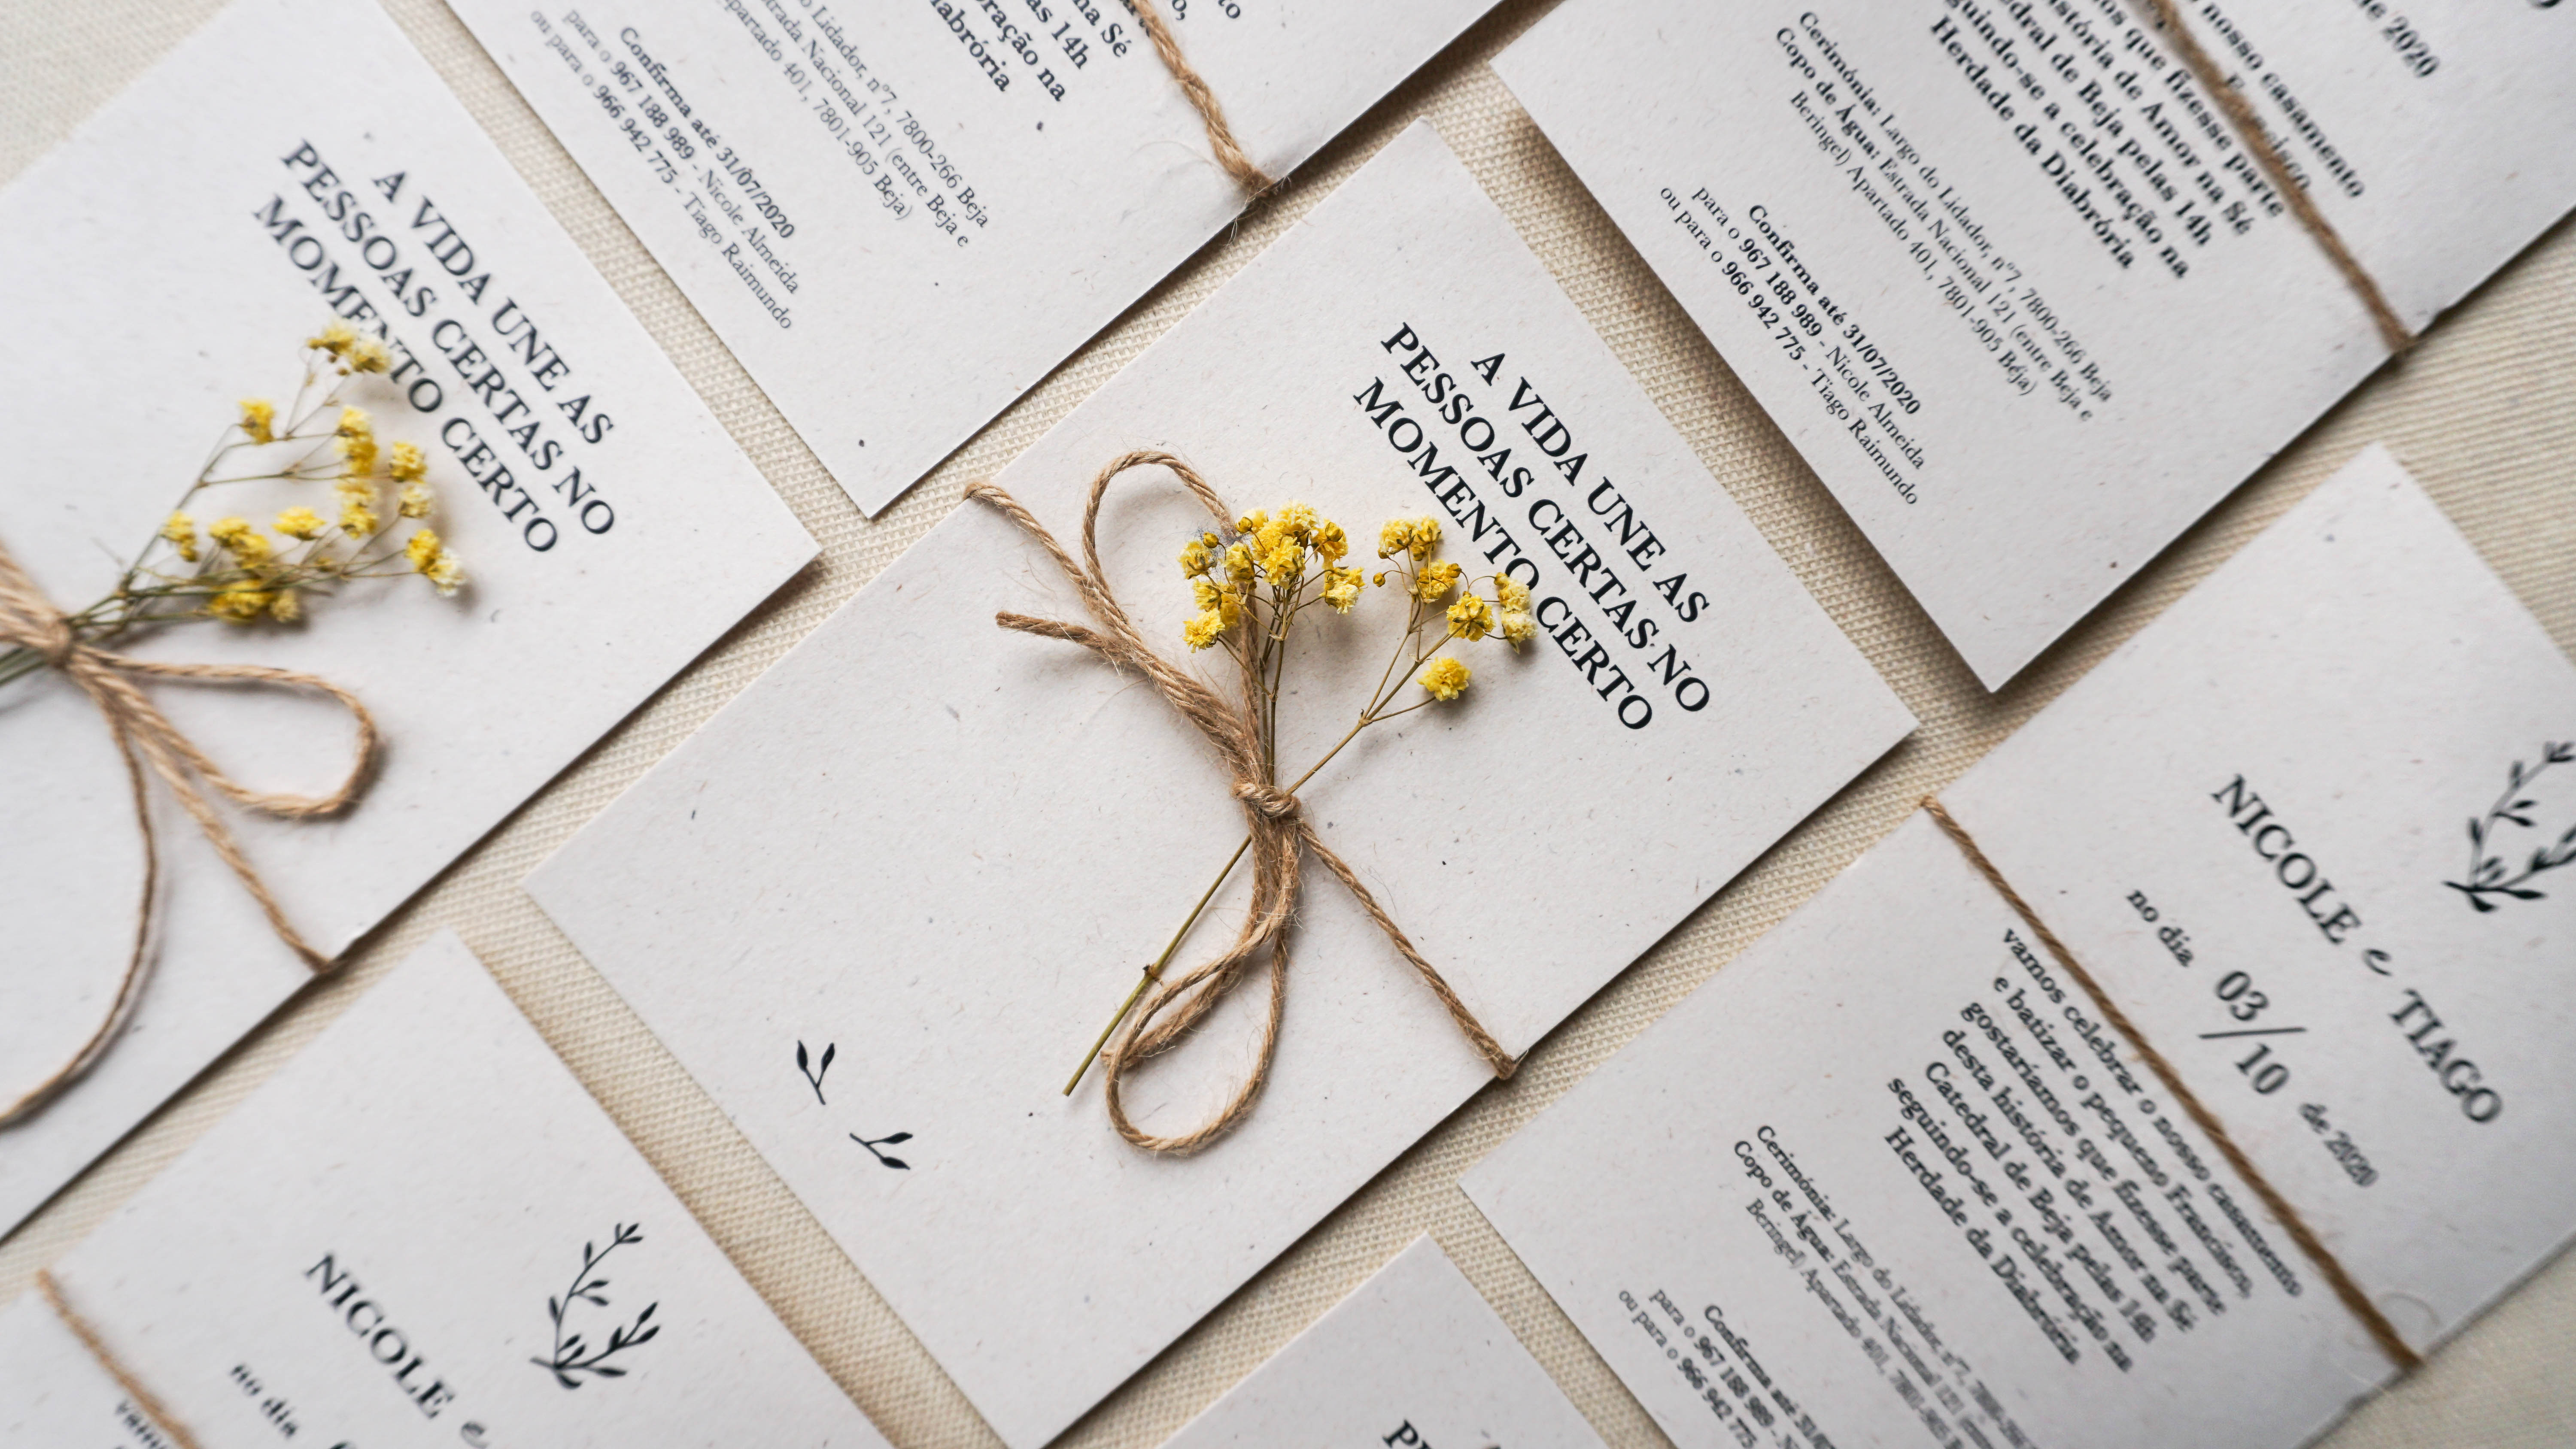 A VIDA UNE AS
PESSOAS CERTAS NO
MOMENTO CERTO
to
o,
na Sé
as 14h
oração na
iabróría
o Lidador, nº7, 7800-266 Beja
trada Nacional 121 (entre Beja e
partado 401, 7801-905 Beja)
Confirma até 31/07/2020
para o 967 188 989 - Nicole Almeida
ou para o 966 942 775 - Tiago Raimundo
A VIDA UNE AS
PESSOAS CERTAS NO
MOMENTO CERTO
de 2020
nosso casamento
os que fizesse parte
istória de Amor na Sé
edral de Beja pelas 14h
guindo-se a celebração na
Herdade da Diabróría
Cerimónia: Largo do Lidador, nº7, 7800-266 Beja
Copo de Água: Estrada Nacional 121 (entre Beja e
Beringel) Apartado 401, 7801-905 Beja)
Confirma até 31/07/2020
para o 967 188 989 - Nicole Almeida
ou para o 966 942 775 - Tiago Raimundo
NICOLE e TIAGO
no dia 03/10 de 2020
vamos celebrar o nosso casamento
e batizar o pequeno Francisco,
gostaríamos que fizesse parte
desta história de Amor na Sé
Catedral de Beja pelas 14h
seguindo-se a celebração na
Herdade da Diabróría
Cerimónia: Largo do Lidador, nº7, 7800-266
Copo de Água: Estrada Nacional 121
Beringel) Apartado 401, 7801-905
Confirma até 31/07
para o 967 188 989 -
ou para o 966 942 775
NICOLE e
no dia